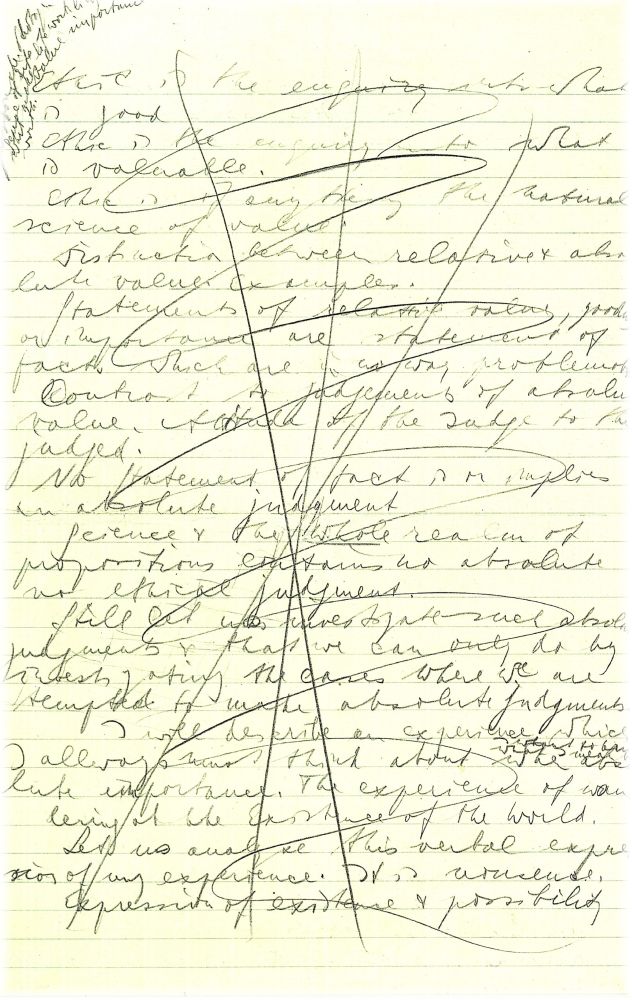 Ethic is the enquiry into what
is good
Ethic is the enquiry into what
is valuable.
Ethic is if anything the natural
science of value.
Distinction between relative & abso
lute value. Examples.
Statements of relative value, good
or importance are statement of
facts which are in no way problemat
Contrast to judgements of absolu
value. Attitude of the Judge to the
judged.
No statement of fact is or implies
an absolute judgment
Science & the whole realm of
propositions contains no absolute
no ethical judgment.
Still let us investigate such absolu
judgments & that we can only do by
investigating the cases where we are
tempted to make absolute judgments
I will describe an experience which
I allways must think about
lute importance. The experience of won
dering at the existence of the world.
Let us analyse this verbal expre
sion of my experience. It is nonsense.
Expression of existence & possibility